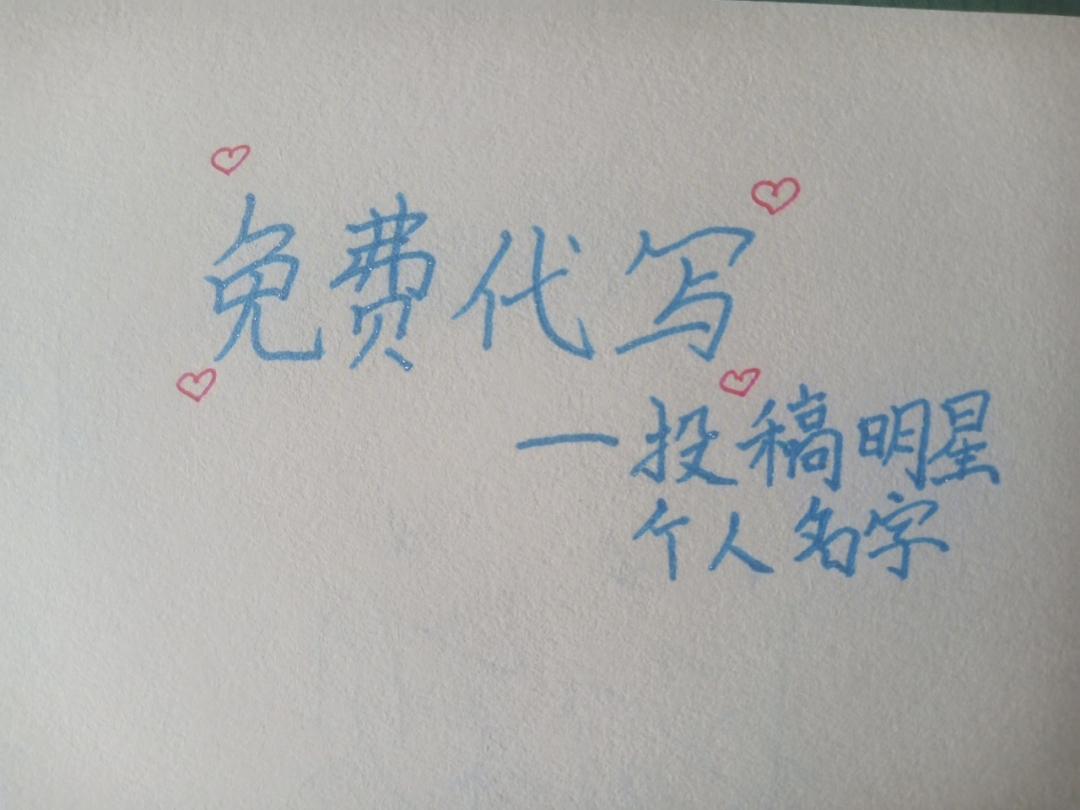 免费代写
一投稿明星
个人名字